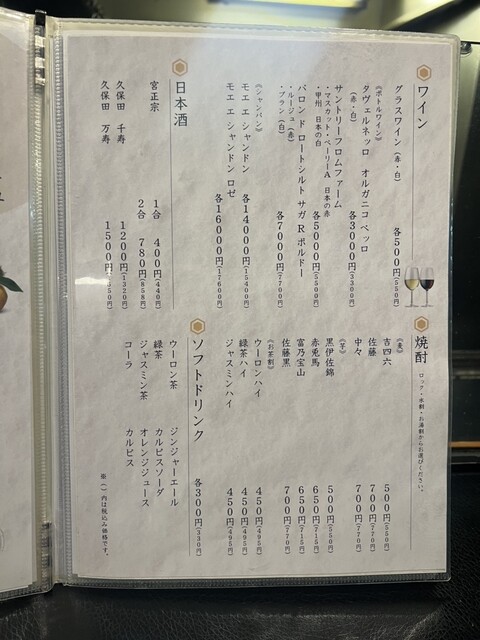 ワイン
グラスワイン（赤・白） 各500円(550円)
《ボトルワイン》
タヴェルネッロ オルガニコ ベッロ
（赤・白） 各3000円(3300円)
サントリーフロムファーム
・マスカット・ベーリーA 日本の赤
・甲州 日本の白 各5000円(5500円)
バロン ド ロートシルト サガ R ボルドー
・ルージュ（赤）
・ブラン（白） 各7000円(7700円)
《シャンパン》
モエ エ シャンドン 各14000円(15400円)
モエ エ シャンドン ロゼ 各16000円(17600円)
日本酒
宮正宗 1合 400円(440円)
2合 780円(858円)
久保田 千寿 1200円(1320円)
久保田 万寿 1500円(1650円)
焼酎 ロック・水割・お湯割からお選びください。
《麦》
吉四六 500円(550円)
佐藤 700円(770円)
中々 700円(770円)
《芋》
黒伊佐錦 500円(550円)
赤兎馬 650円(715円)
富乃宝山 650円(715円)
佐藤黒 700円(770円)
《お茶割》
ウーロンハイ 450円(495円)
緑茶ハイ 450円(495円)
ジャスミンハイ 450円(495円)
ソフトドリンク 各300円(330円)
ウーロン茶 ジンジャーエール
緑茶 カルピスソーダ
ジャスミン茶 オレンジジュース
コーラ カルピス
※（ ）内は税込み価格です。